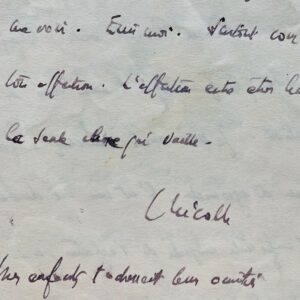 me voir. Ecris moi. Surtout con
ton affection. L'affection entre êtres
la seule chose qui vaille.
Nicole
mes enfants t'adressent leurs amitiés